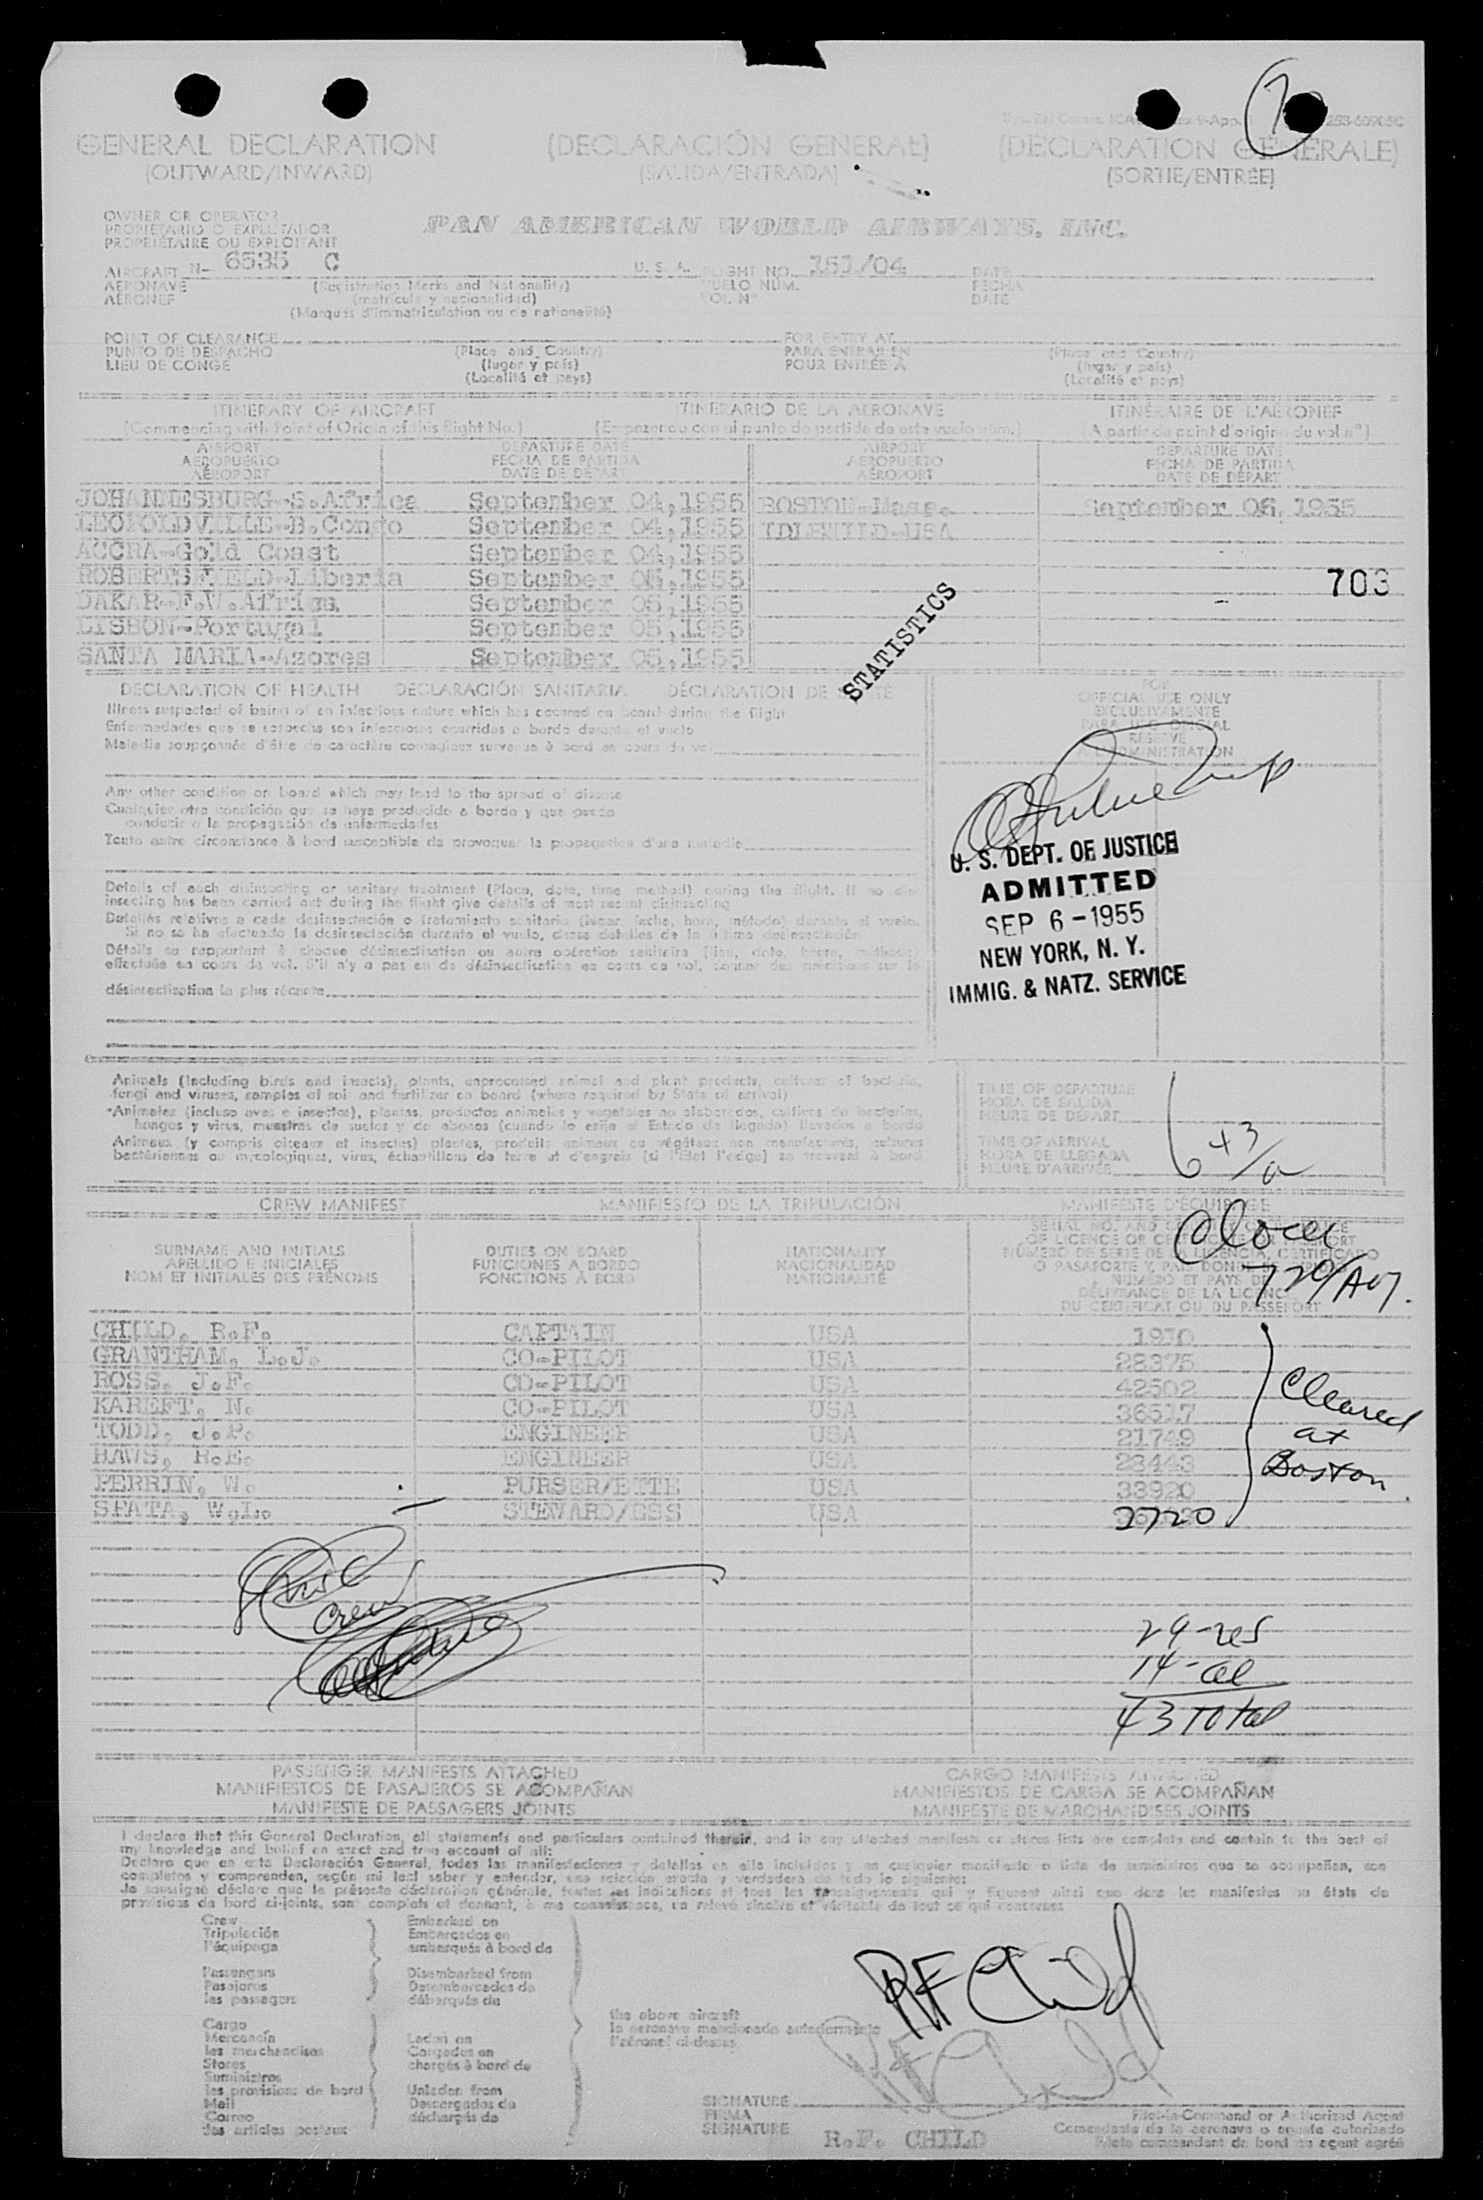 GENERAL DECLARATION (DECLARACIÓN GENERAL) (DECLARATION GENERALE)
(OUTWARD/INWARD) (SALIDA/ENTRADA) (SORTIE/ENTRÉE)
OWNER OR OPERATOR
PROPIETARIO O EXPLOTADOR
PROPRIÉTAIRE OU EXPLOITANT
PAN AMERICAN WORLD AIRWAYS, INC.
AIRCRAFT N- 6535 C U. S. A. FLIGHT NO. 151/04 DATE
AERONAVE (Registration Marks and Nationality) VUELO NÚM. FECHA
AÉRONEF (matrícula y nacionalidad) VOL N° DATE
(Marques d'immatriculation ou de nationalité)
POINT OF CLEARANCE FOR ENTRY AT
PUNTO DE DESPACHO (Place and Country) PARA ENTRAR EN (Place and Country)
LIEU DE CONGÉ (lugar y país) POUR ENTRÉE A (lugar y país)
(Localité et pays) (Localité et pays)
ITINERARY OF AIRCRAFT ITINERARIO DE LA AERONAVE ITINÉRAIRE DE L'AÉRONEF
(Commencing with Point of Origin of this flight No.) (Empezando con el punto de partida de este vuelo núm.) (A partir du point d'origine du vol n°)
AIRPORT DEPARTURE DATE AIRPORT DEPARTURE DATE
AEROPUERTO FECHA DE PARTIDA AEROPUERTO FECHA DE PARTIDA
AÉROPORT DATE DE DÉPART AÉROPORT DATE DE DÉPART
JOHANNESBURG-S.Africa September 04,1955 BOSTON-Mass. September 06,1955
LEOPOLDVILLE-B.Congo September 04,1955 IDLEWILD-USA
ACCRA-Gold Coast September 04,1955
ROBERTSFIELD-Liberia September 05,1955
703
DAKAR-F.W.Africa September 05,1955
LISBON-Portugal September 05,1955
SANTA MARIA-Azores September 05,1955
STATISTICS
DECLARATION OF HEALTH DECLARACIÓN SANITARIA DÉCLARATION DE SANTÉ
FOR
OFFICIAL USE ONLY
EXCLUSIVAMENTE
PARA USO OFICIAL
RÉSERVÉ
A L'ADMINISTRATION
Illness suspected of being of an infectious nature which has occurred on board during the flight
Enfermedades que se sospecha son infecciosas ocurridas a bordo durante el vuelo
Maladie soupçonnée d'être de caractère contagieux survenue à bord en cours de vol
Any other condition on board which may lead to the spread of disease
Cualquier otra condición que se haya producido a bordo y que pueda
conducir a la propagación de enfermedades
Toute autre circonstance à bord susceptible de provoquer la propagation d'une maladie
U. S. DEPT. OF JUSTICE
ADMITTED
SEP 6 - 1955
NEW YORK, N. Y.
IMMIG. & NATZ. SERVICE
Details of each disinsecting or sanitary treatment (Place, date, time method) during the flight. If no dis-
insecting has been carried out during the flight give details of most recent disinsecting
Detalles relativos a cada desinsectación o tratamiento sanitario (lugar, fecha, hora, método) durante el vuelo.
Si no se ha efectuado la desinsectación durante el vuelo, dense detalles de la última desinsectación
Détails se rapportant à chaque désinsectisation ou autre opération sanitaire (lieu, date, heure, méthode)
effectuée en cours de vol. S'il n'y a pas eu de désinsectisation en cours de vol, donner des précisions sur la
désinsectisation la plus récente
Animals (including birds and insects), plants, unprocessed animal and plant products, cultures of bacteria,
fungi and viruses, samples of soil and fertilizer on board (where required by State of arrival)
Animales (incluso aves e insectos), plantas, productos animales y vegetales no elaborados, cultivos de bacterias,
hongos y virus, muestras de suelos y de abonos (cuando lo exija el Estado de llegada) llevados a bordo
Animaux (y compris oiseaux et insectes) plantes, produits animaux ou végétaux non manufacturés, cultures
bactériennes ou mycologiques, virus, échantillons de terre et d'engrais (si l'État l'exige) se trouvant à bord
TIME OF DEPARTURE
HORA DE SALIDA
HEURE DE DÉPART
TIME OF ARRIVAL
HORA DE LLEGADA
HEURE D'ARRIVÉE
6 43/a
CREW MANIFEST MANIFIESTO DE LA TRIPULACIÓN MANIFESTE D'ÉQUIPAGE
720/AM.
SURNAME AND INITIALS DUTIES ON BOARD NATIONALITY
APELLIDO E INICIALES FUNCIONES A BORDO NACIONALIDAD
NOM ET INITIALES DES PRÉNOMS FONCTIONS À BORD NATIONALITÉ
NÚMERO DE SERIE DE LA LICENCIA, CERTIFICADO
NUMÉRO ET PAYS DE
DÉLIVRANCE DE LA LICENCE
DU CERTIFICAT OU DU PASSEPORT
CHILD, R.F. CAPTAIN USA 1910
GRANTHAM, L.J. CO-PILOT USA 28375
ROSS, J.F. CO-PILOT USA 42502
KAREFT, N. CO-PILOT USA 36517
TODD, J.P. ENGINEER USA 21749
HAWS, H.E. ENGINEER USA 23443
PERRIN, W. PURSER/ETTE USA 33920
SPATA, W.L. STEWARD/ESS USA 2720
Cleared
at
Boston
Crew
29-res
14-al
43 Total
PASSENGER MANIFESTS ATTACHED CARGO MANIFESTS ATTACHED
MANIFIESTOS DE PASAJEROS SE ACOMPAÑAN MANIFIESTOS DE CARGA SE ACOMPAÑAN
MANIFESTE DE PASSAGERS JOINTS MANIFESTE DE MARCHANDISES JOINTS
I declare that this General Declaration, all statements and particulars contained therein, and in any attached manifests or stores lists are complete and contain to the best of
my knowledge and belief an exact and true account of all:
Declaro que en esta Declaración General, todas las manifestaciones y detalles en ella incluidos y en cualquier manifiesto o lista de suministros que se acompañan, son
completos y comprenden, según mi leal saber y entender, una relación exacta y verdadera de todo lo siguiente:
Je soussigné déclare que la présente déclaration générale, toutes les indications et tous les renseignements qui y figurent ainsi que dans les manifestes ou états de
provisions de bord ci-joints, sont complets et donnent, à ma connaissance, un relevé sincère et véritable de tout ce qui concerne:
Crew Embarked on
Tripulación Embarcados en
l'équipage embarqués à bord de
Passengers Disembarked from
Pasajeros Desembarcados de
les passagers débarqués de
RF Child
the above aircraft
la aeronave mencionada anteriormente
l'aéronef ci-dessus
Cargo
Mercancía Laden on
les marchandises Cargados en
Stores chargés à bord de
Suministros
les provisions de bord Unladen from
Mail Descargados de
Correo déchargés de
les articles postaux
RF Child
SIGNATURE
FIRMA Pilot-in-Command or Authorized Agent
SIGNATURE Comandante de la aeronave o agente autorizado
R.F. CHILD Pilote commandant de bord ou agent agréé